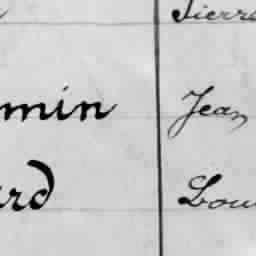 Pierre
min Jean
ard Lou